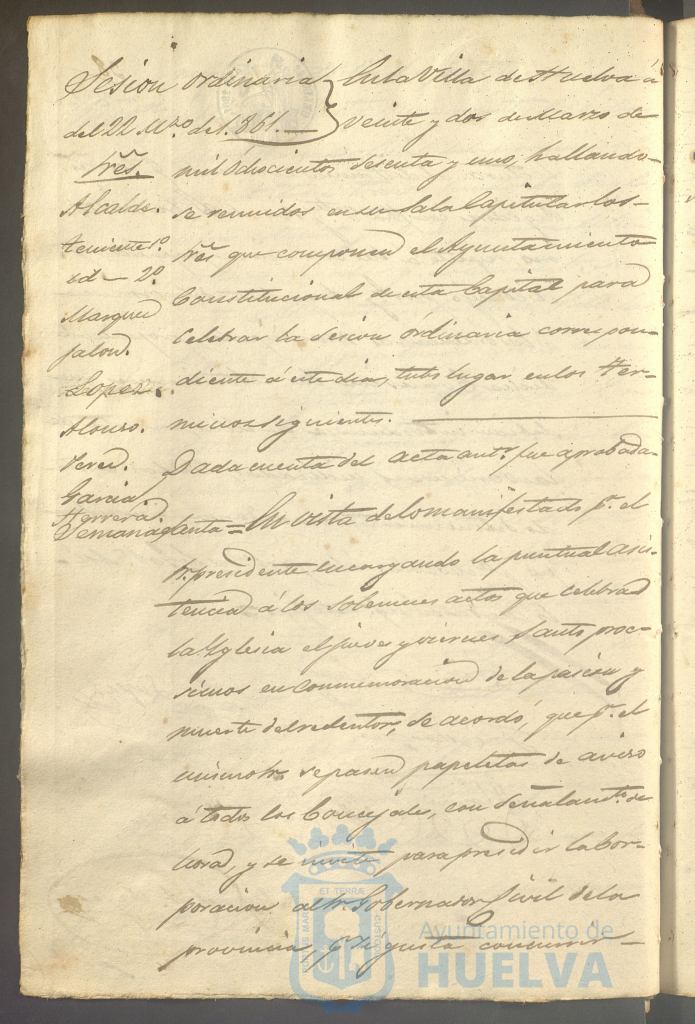 Sesion ordinaria
del 22 Mzo. de 1.861.—
Sres.
Alcalde.
Teniente 1º.
id — 2º.
Marquez
Jalon.
Lopez.
Alonso.
Perez.
Garcia
Herrera.
En la Villa de Huelva á
veinte y dos de Marzo de
mil ochocientos sesenta y uno, hallando-
se reunidos en su Sala Capitular los
Sres. que componen el Ayuntamiento
Constitucional de esta Capital para
celebrar la sesion órdinaria correspon-
diente á este dia, tubo lugar en los ter-
minos siguientes.
Dada cuenta del acta antr. fue aprobada
Semana Santa = En vista de lo manifestado pr. el
Sr. presidente encargando la puntual asis-
tencia á los solemnes actos que celebra
la Yglesia el jueves y viernes Santo proc-
simos en conmemoracion de la pasion y
muerte del redentor, se acordó, que pr. el
mismo Sr. se pasen papeletas de aviso
á todos los Concejales, con señalamto. de
hora, y se invite para presidir la Cor-
poracion al Sr. Gobernador Civil de la
provincia si gusta concurrir
ET TERRÆ
Ayuntamiento de
HUELVA